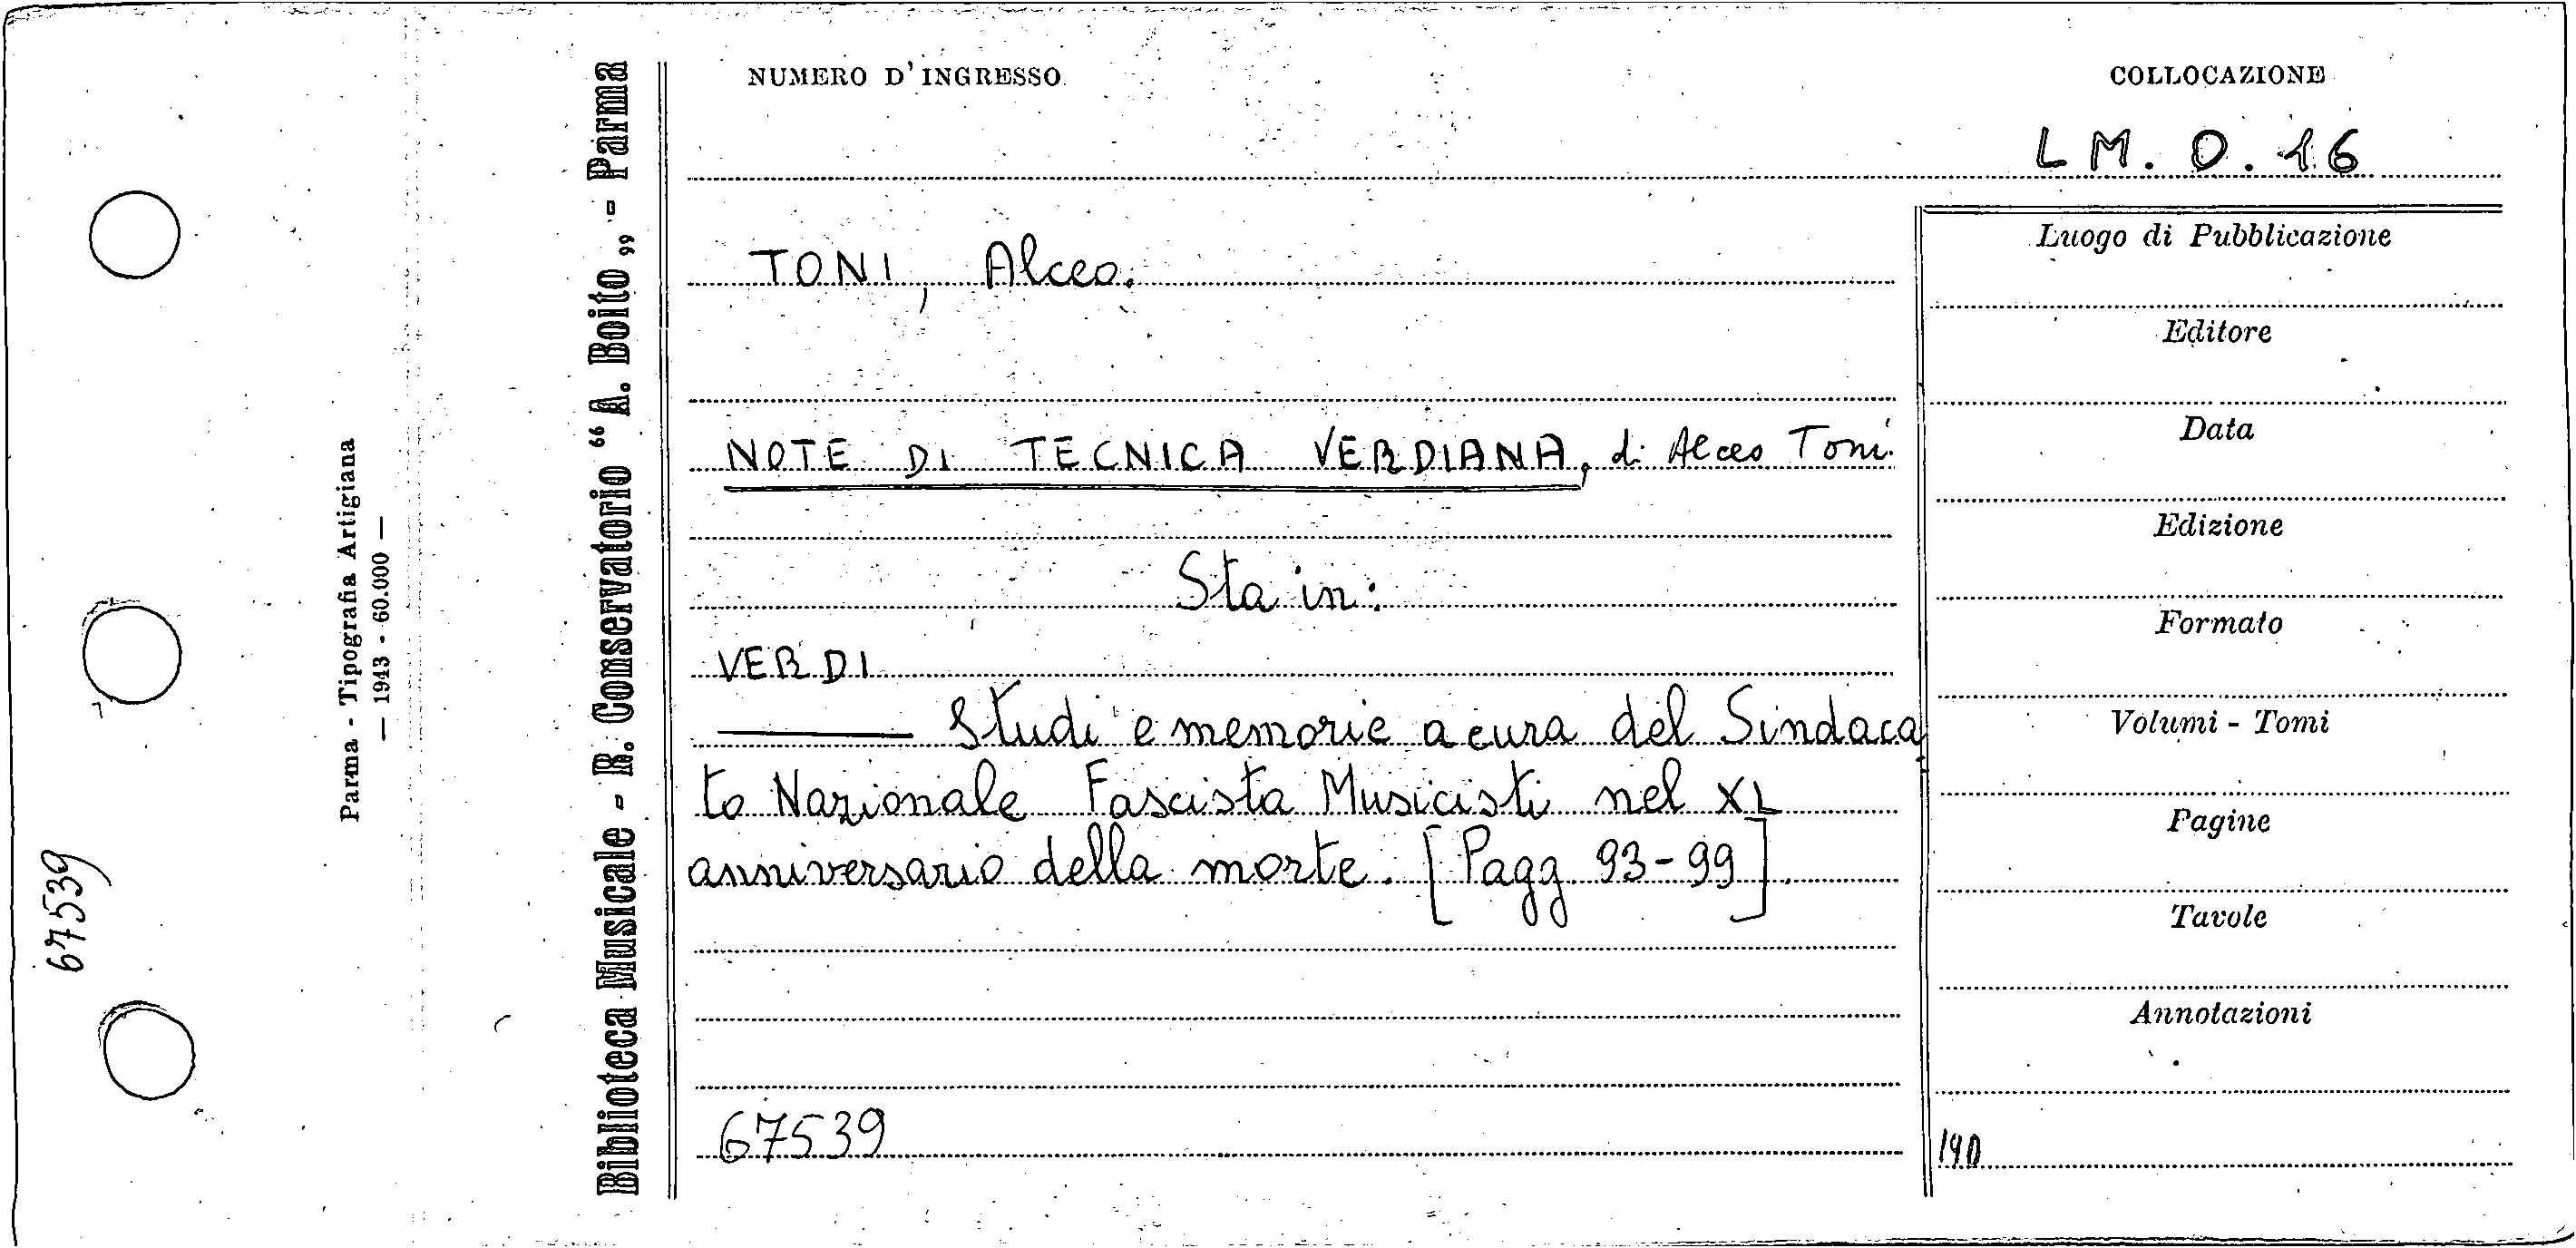 NUMERO D'INGRESSO
COLLOCAZIONE
L M. O. 16
TONI, Alceo.
NOTE DI TECNICA VERDIANA, di Alceo Toni.
Sta in:
VERDI
——— Studi e memorie a cura del Sindaca
to Nazionale Fascista Musicisti nel XL
anniversario della morte. [Pagg 93-99].
67539
Luogo di Pubblicazione
Editore
Data
Edizione
Formato
Volumi - Tomi
Pagine
Tavole
Annotazioni
190
Biblioteca Musicale - R. Conservatorio “A. Boito„ - Parma
Parma - Tipografia Artigiana
— 1943 - 60.000 —
67539